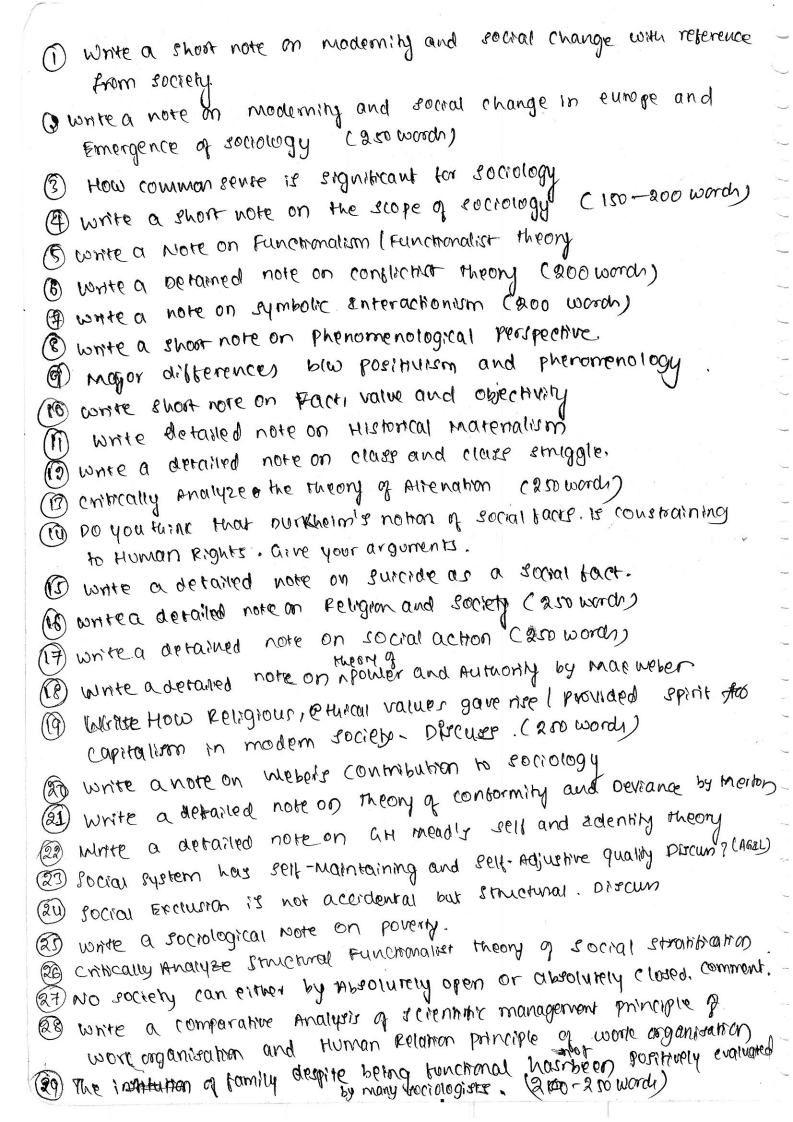 ① Write a short note on modernity and social change with reference
from society.
② Write a note on modernity and social change in europe and
Emergence of sociology (250 words)
③ How common sense is significant for sociology
④ Write a short note on the scope of sociology (150-200 words)
⑤ Write a Note on Functionalism / Functionalist theory
⑥ Write a Detained note on conflictist theory (200 words)
⑦ Write a note on symbolic Interactionism (200 words)
⑧ Write a short note on phenomenological perspective.
⑨ Major differences b/w positivism and phenomenology.
⑩ Write short note on Fact, value and objectivity
⑪ Write detailed note on Historical Materialism
⑫ Write a detailed note on class and class struggle.
⑬ Critically Analyze the theory of Alienation (250 words)
⑭ Do you think that Durkheim's notion of social facts. is constraining
to Human Rights. Give your arguments.
⑮ Write a detailed note on suicide as a social fact.
⑯ Write a detailed note on Religion and society (250 words)
⑰ Write a detained note on social action (250 words)
⑱ Write a detailed note on theory of power and Authority by Max weber
⑲ How Religious, ethical values gave rise / provided spirit to
capitalism in modern society - Discuss. (250 words)
⑳ Write a note on Weber's contribution to sociology
㉑ Write a detailed note on theory of conformity and Deviance by merton
㉒ Write a detailed note on GH Mead's self and Identity theory
㉓ Social system has self-Maintaining and self-Adjustive quality Discuss? (AGIL)
㉔ Social Exclusion is not accidental but structural. Discuss
㉕ Write a sociological Note on poverty.
㉖ Critically Analyze structural Functionalist theory of social stratification.
㉗ No society can either by Absolutely open or absolutely closed. comment.
㉘ Write a comparative Analysis of scientific management principle of
work organisation and Human Relation principle of work organisation
㉙ The institution of family despite being functional has not been positively evaluated
by many sociologists. (200-250 words)